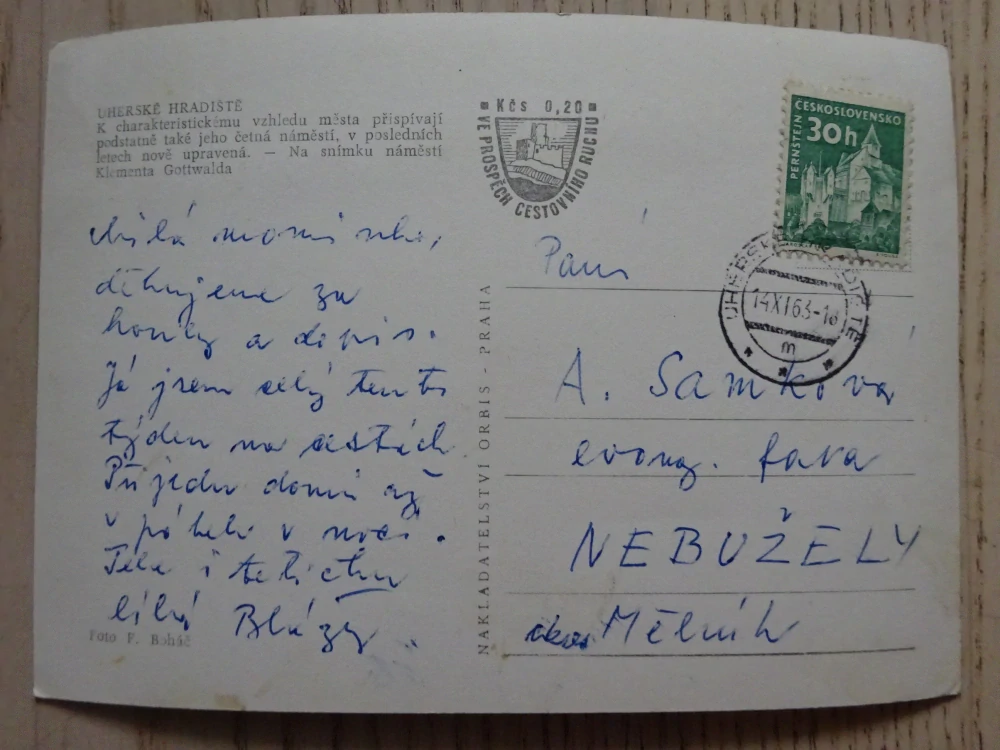 UHERSKÉ HRADIŠTĚ
K charakteristickému vzhledu města přispívají
podstatně také jeho četná náměstí, v posledních
letech nově upravená. — Na snímku náměstí
Klementa Gottwalda
Kčs 0,20
VE PROSPĚCH CESTOVNÍHO RUCHU
ČESKOSLOVENSKO
30h
PERNŠTEJN
UHERSKÉ HRADIŠTĚ
14XI63-18
m
Milá maminko,
děkujeme za
houby a dopis.
Já jsem celý tento
týden na cestách
Přijedu domů až
v pátek v noci.
Tebe i tetičku
líbá
NAKLADATELSTVÍ ORBIS - PRAHA
Paní
A. Samková
evang. fara
NEBUŽELY
okres Mělník
Foto F. Boháč